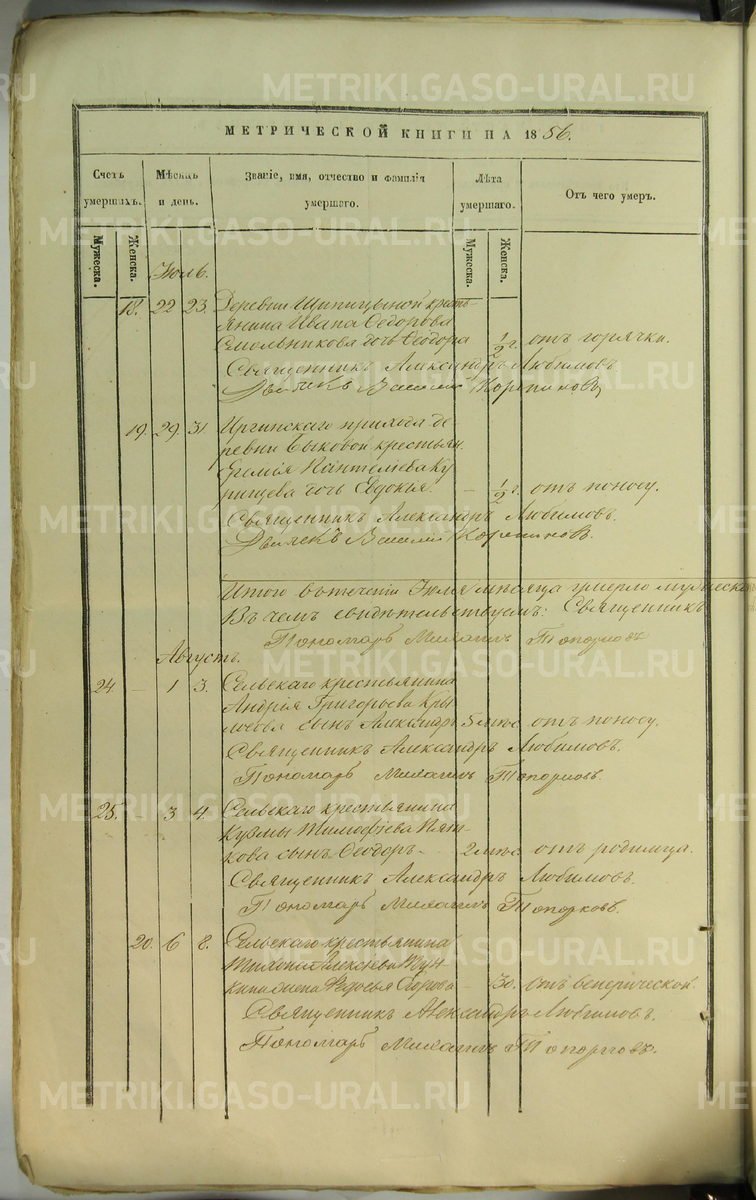 МЕТРИЧЕСКОЙ КНИГИ НА 1856.
Счетъ умершихъ. Мѣсяцъ и день. Званіе, имя, отчество и фамилія умершаго. Лѣта умершаго. Отъ чего умеръ.
Мужеска. Женска. Мужеска. Женска.
Іюль.
18. 22 23. Деревни Шипицыной кресть-
янина Ивана Ѳедорова
Смольникова дочь Ѳеодора 1/2 г. отъ горячки.
Священникъ Александръ Любимовъ
Дьячекъ Василій
19. 29. 31 Иргинскаго прихода де-
ревни Быковой крестьян.
Еремія Пантелѣева Ку
рищева дочь Евдокія. — 1/2 г. отъ поносу.
Священникъ Александръ Любимовъ.
Дьячекъ Василій
Итого въ теченіи Іюля мѣсяца умерло мужеска
Въ чемъ свидѣтельствуемъ: Священникъ
Пономарь Михаилъ Топорковъ
Августъ.
24. — 1 3. Сельскаго крестьянина
Андрея Григорьева Кры
лосова сынъ Александръ 5 мѣс. отъ поносу.
Священникъ Александръ Любимовъ.
Пономарь Михаилъ Топорковъ.
25. 3 4. Сельскаго крестьянина
Кузмы Тимофѣева Пят-
кова сынъ Ѳеодоръ. — 2 мѣс. отъ родимца.
Священникъ Александръ Любимовъ.
Пономарь Михаилъ Топорковъ.
20. 6 8. Сельскаго крестьянина
Тихона Алексѣева
жена Федосья Егорова — 30. отъ венерической.
Священникъ Александръ Любимовъ.
Пономарь Михаилъ Топорковъ.
METRIKI.GASO-URAL.RU